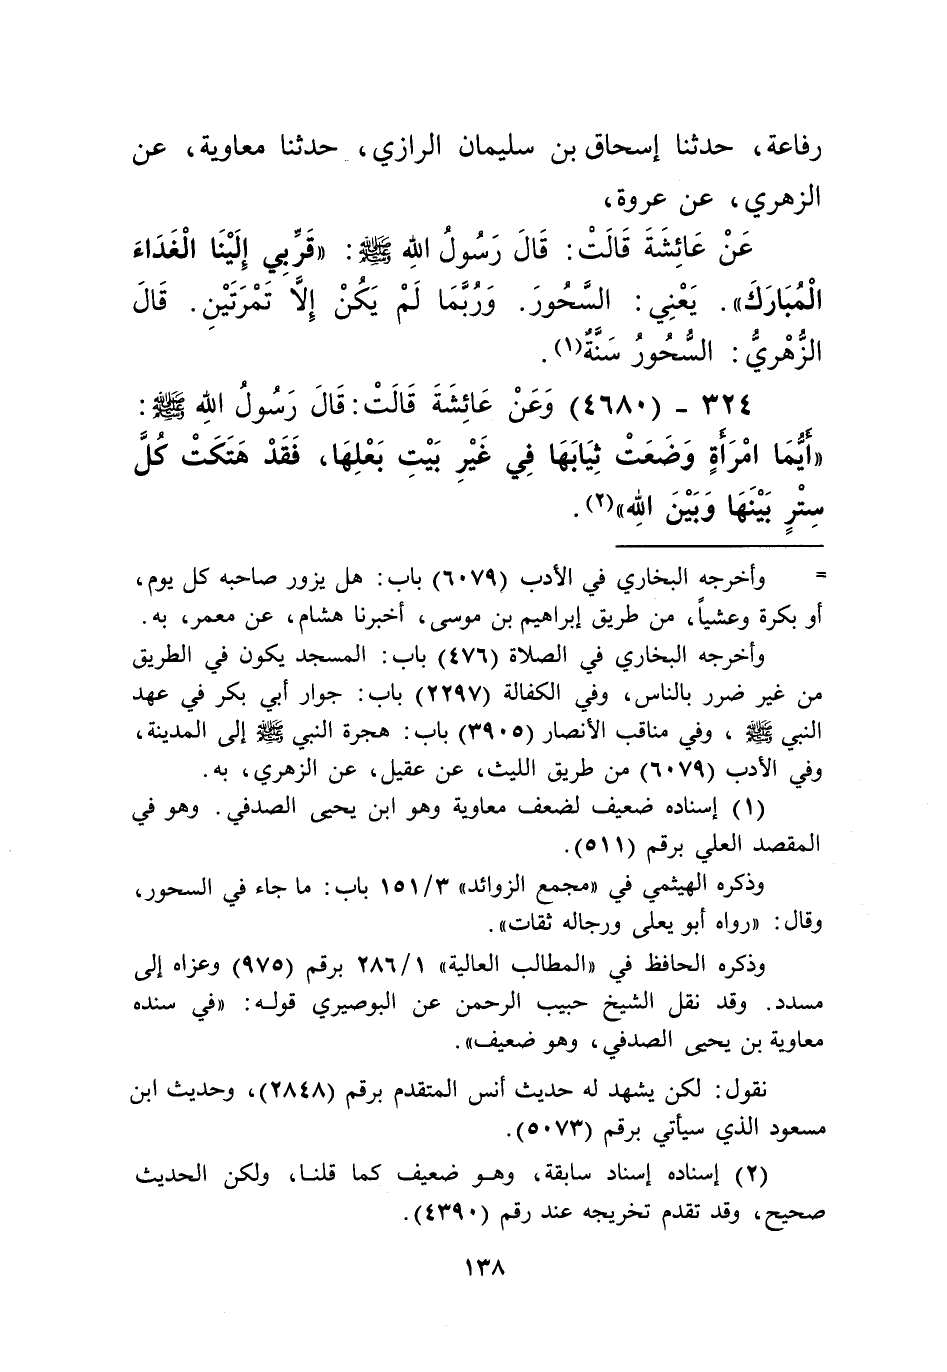 رفاعة، حدثنا إسحاق بن سليمان الرازي، حدثنا معاوية، عن
الزهري، عن عروة،
عَنْ عَائِشَةَ قَالَتْ: قَالَ رَسُولُ اللهِ ﷺ: «قَرِّبِي إِلَيْنَا الْغَدَاءَ
الْمُبَارَكَ». يَعْنِي: السَّحُورَ. وَرُبَّمَا لَمْ يَكُنْ إِلَّا تَمْرَتَيْنِ. قَالَ
الزُّهْرِيُّ: السُّحُورُ سَنَّةٌ(١).
٣٢٤ - (٤٦٨٠) وَعَنْ عَائِشَةَ قَالَتْ: قَالَ رَسُولُ اللهِ ﷺ:
«أَيُّمَا امْرَأَةٍ وَضَعَتْ ثِيَابَهَا فِي غَيْرِ بَيْتِ بَعْلِهَا، فَقَدْ هَتَكَتْ كُلَّ
سِتْرٍ بَيْنَهَا وَبَيْنَ اللهِ»(٢).
= وأخرجه البخاري في الأدب (٦٠٧٩) باب: هل يزور صاحبه كل يوم،
أو بكرة وعشياً، من طريق إبراهيم بن موسى، أخبرنا هشام، عن معمر، به.
وأخرجه البخاري في الصلاة (٤٧٦) باب: المسجد يكون في الطريق
من غير ضرر بالناس، وفي الكفالة (٢٢٩٧) باب: جوار أبي بكر في عهد
النبي ﷺ، وفي مناقب الأنصار (٣٩٠٥) باب: هجرة النبي ﷺ إلى المدينة،
وفي الأدب (٦٠٧٩) من طريق الليث، عن عقيل، عن الزهري، به.
(١) إسناده ضعيف لضعف معاوية وهو ابن يحيى الصدفي. وهو في
المقصد العلي برقم (٥١١).
وذكره الهيثمي في «مجمع الزوائد» ٣/١٥١ باب: ما جاء في السحور،
وقال: «رواه أبو يعلى ورجاله ثقات».
وذكره الحافظ في «المطالب العالية» ١/٢٨٦ برقم (٩٧٥) وعزاه إلى
مسدد. وقد نقل الشيخ حبيب الرحمن عن البوصيري قوله: «في سنده
معاوية بن يحيى الصدفي، وهو ضعيف».
نقول: لكن يشهد له حديث أنس المتقدم برقم (٢٨٤٨)، وحديث ابن
مسعود الذي سيأتي برقم (٥٠٧٣).
(٢) إسناده إسناد سابقة، وهو ضعيف كما قلنا، ولكن الحديث
صحيح، وقد تقدم تخريجه عند رقم (٤٣٩٠).
١٣٨